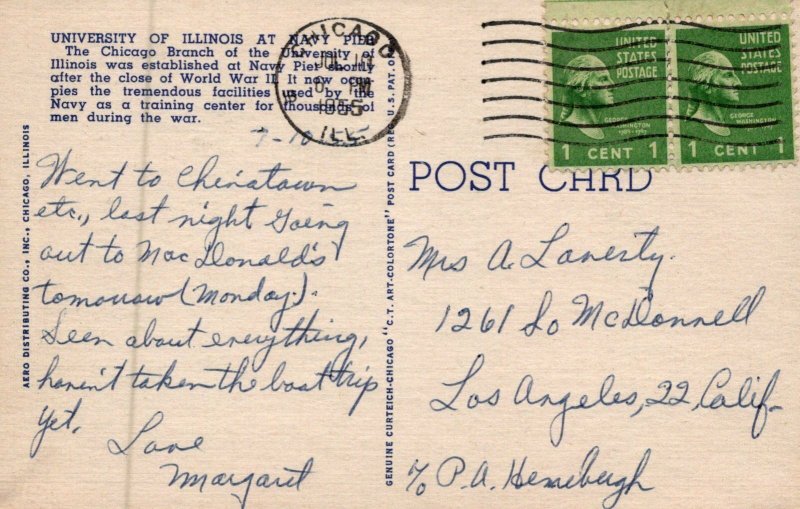 UNIVERSITY OF ILLINOIS AT NAVY PIER
The Chicago Branch of the University of
Illinois was established at Navy Pier shortly
after the close of World War II. It now occu-
pies the tremendous facilities used by the
Navy as a training center for thousands of
men during the war.
7-10
Went to Chinatown
etc., last night Going
out to MacDonald's
tomorrow (Monday).
Seen about everything,
haven't taken the boat trip
yet.
Love
Margaret
AERO DISTRIBUTING CO., INC., CHICAGO, ILLINOIS
GENUINE CURTEICH-CHICAGO "C.T. ART-COLORTONE" POST CARD (REG. U.S. PAT. OFF.
CHICAGO
JUL 10
PM
1955
ILL.
UNITED
STATES
POSTAGE
GEORGE
WASHINGTON
1 CENT 1
UNITED
STATES
POSTAGE
GEORGE
WASHINGTON
1 CENT 1
POST CARD
Mrs A. Laverty.
1261 So McDonnell
Los Angeles, 22, Calif-
c/o P.A.